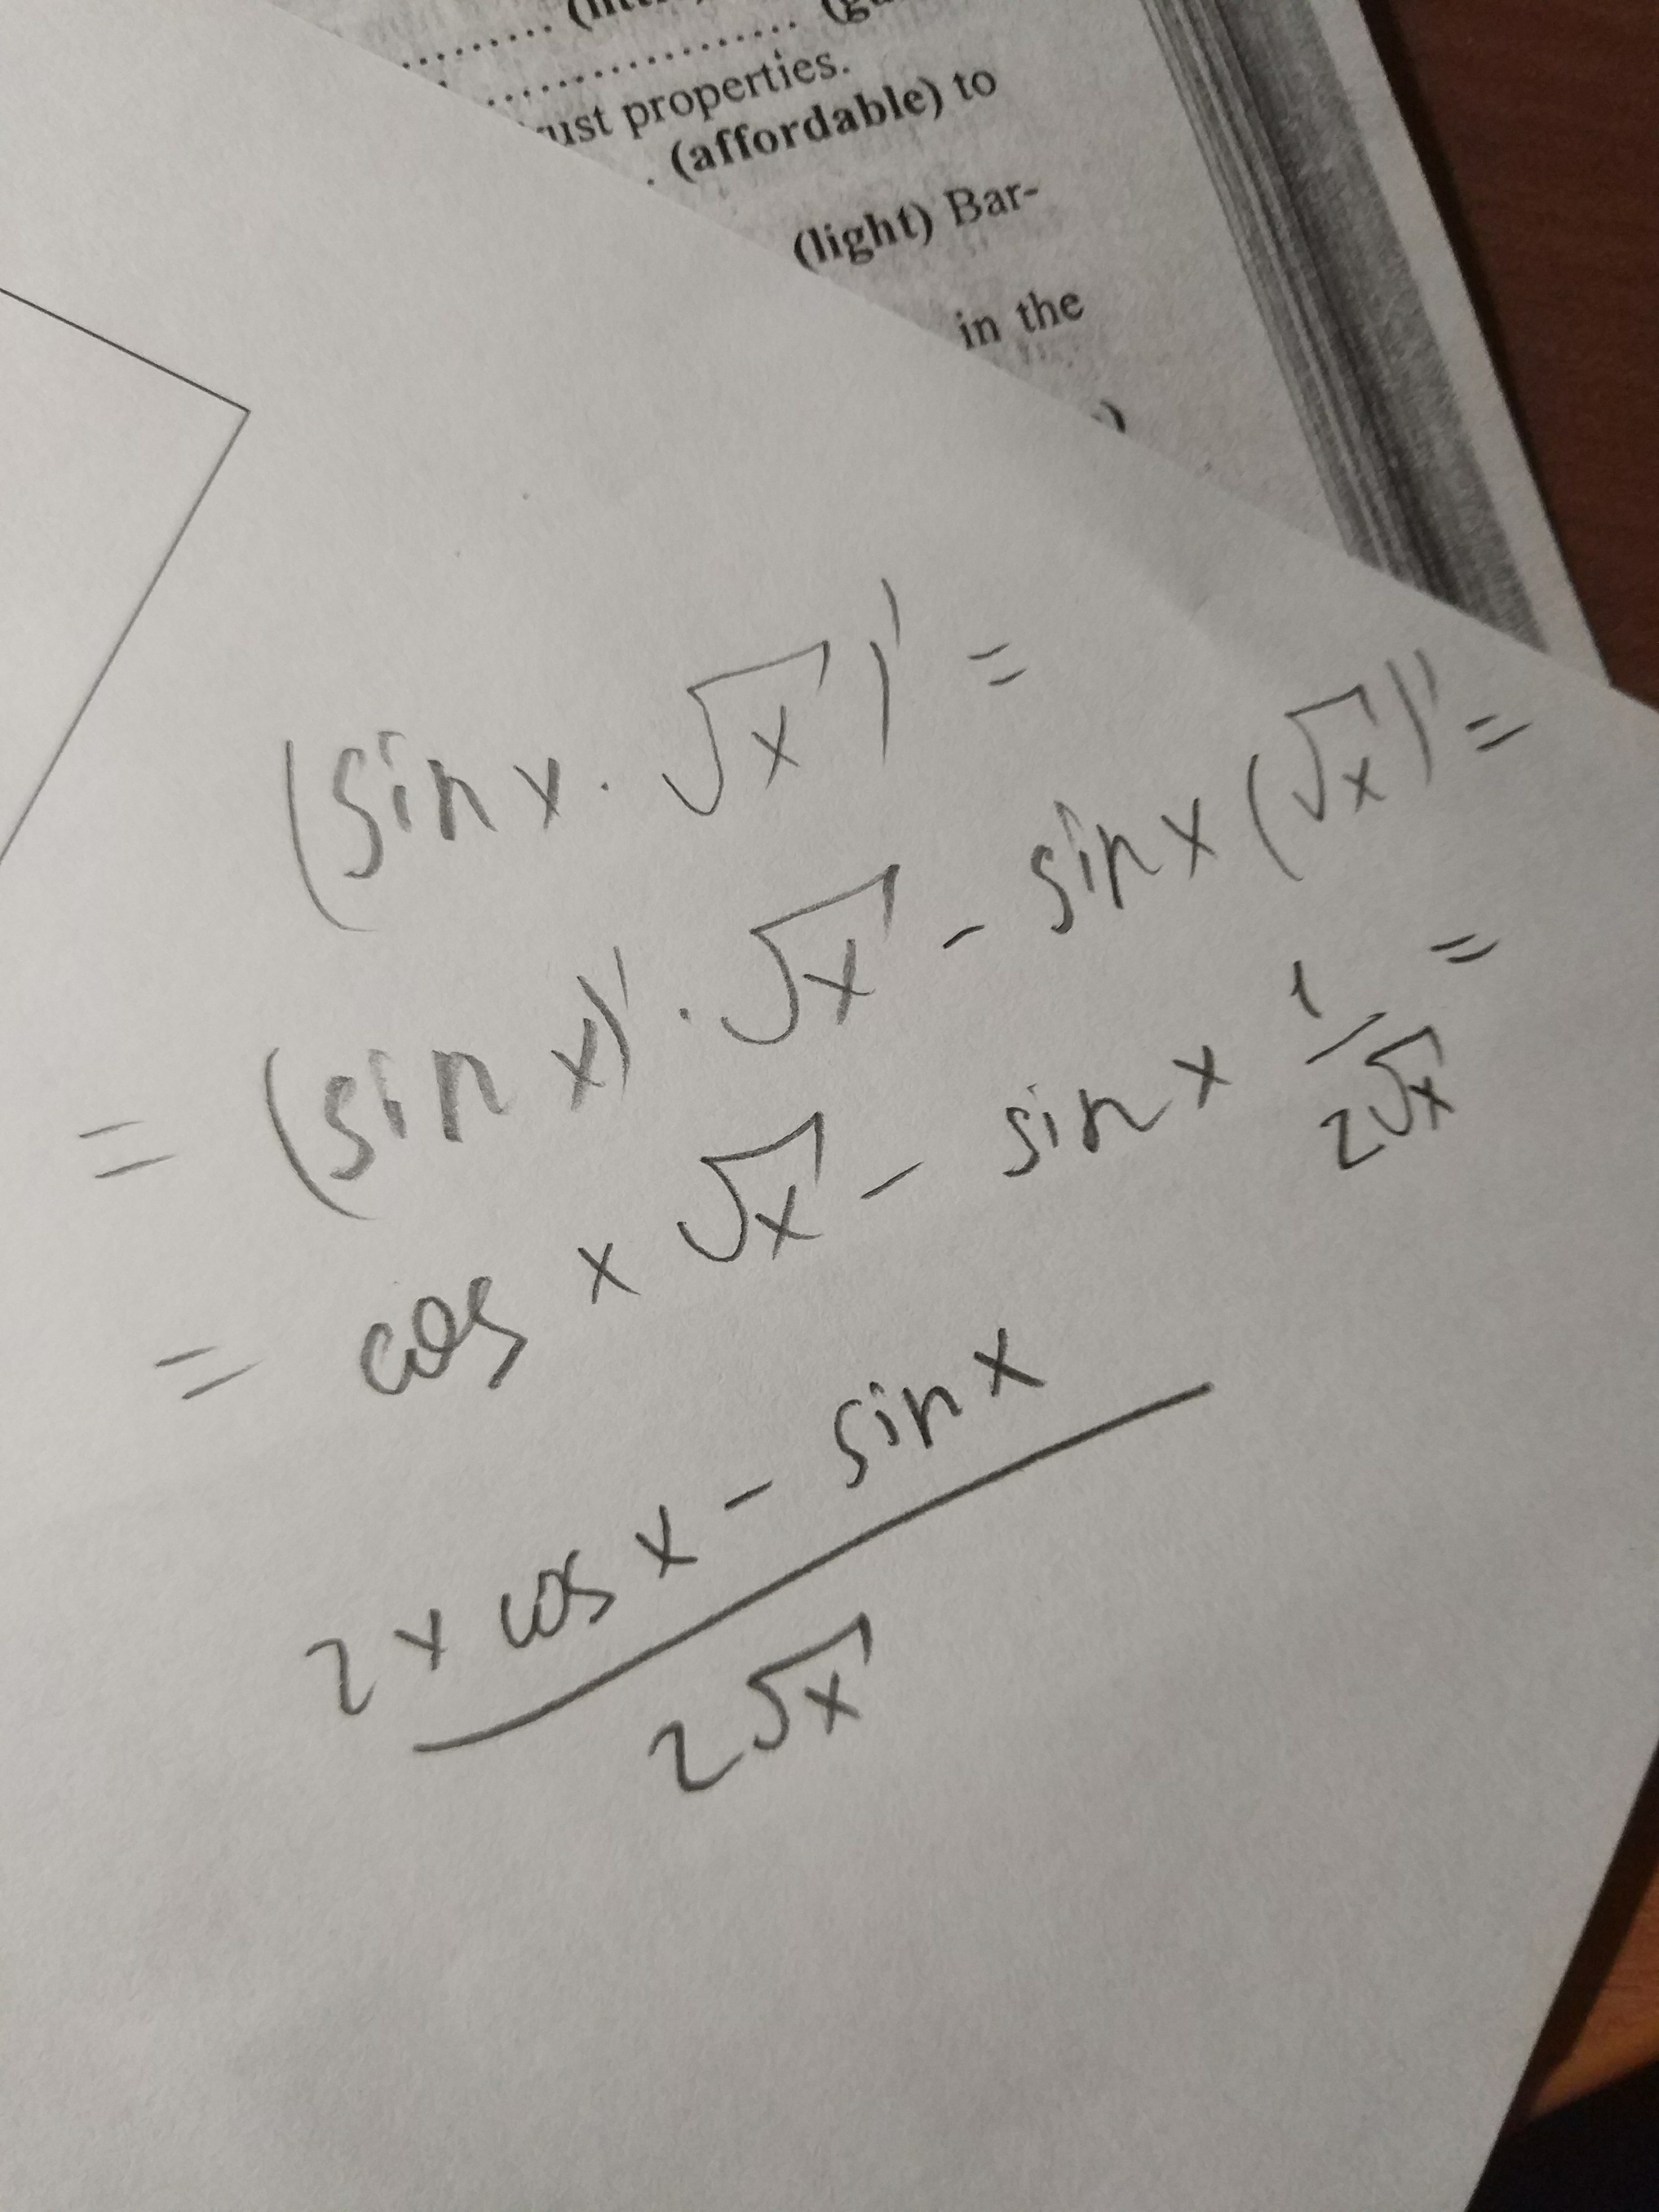 ust properties.
(affordable) to
(light) Bar-
in the
(sin x · √x)' =
= (sin x)' · √x - sin x (√x)' =
= cos x √x - sin x 1/2√x =
2x cos x - sin x
2√x